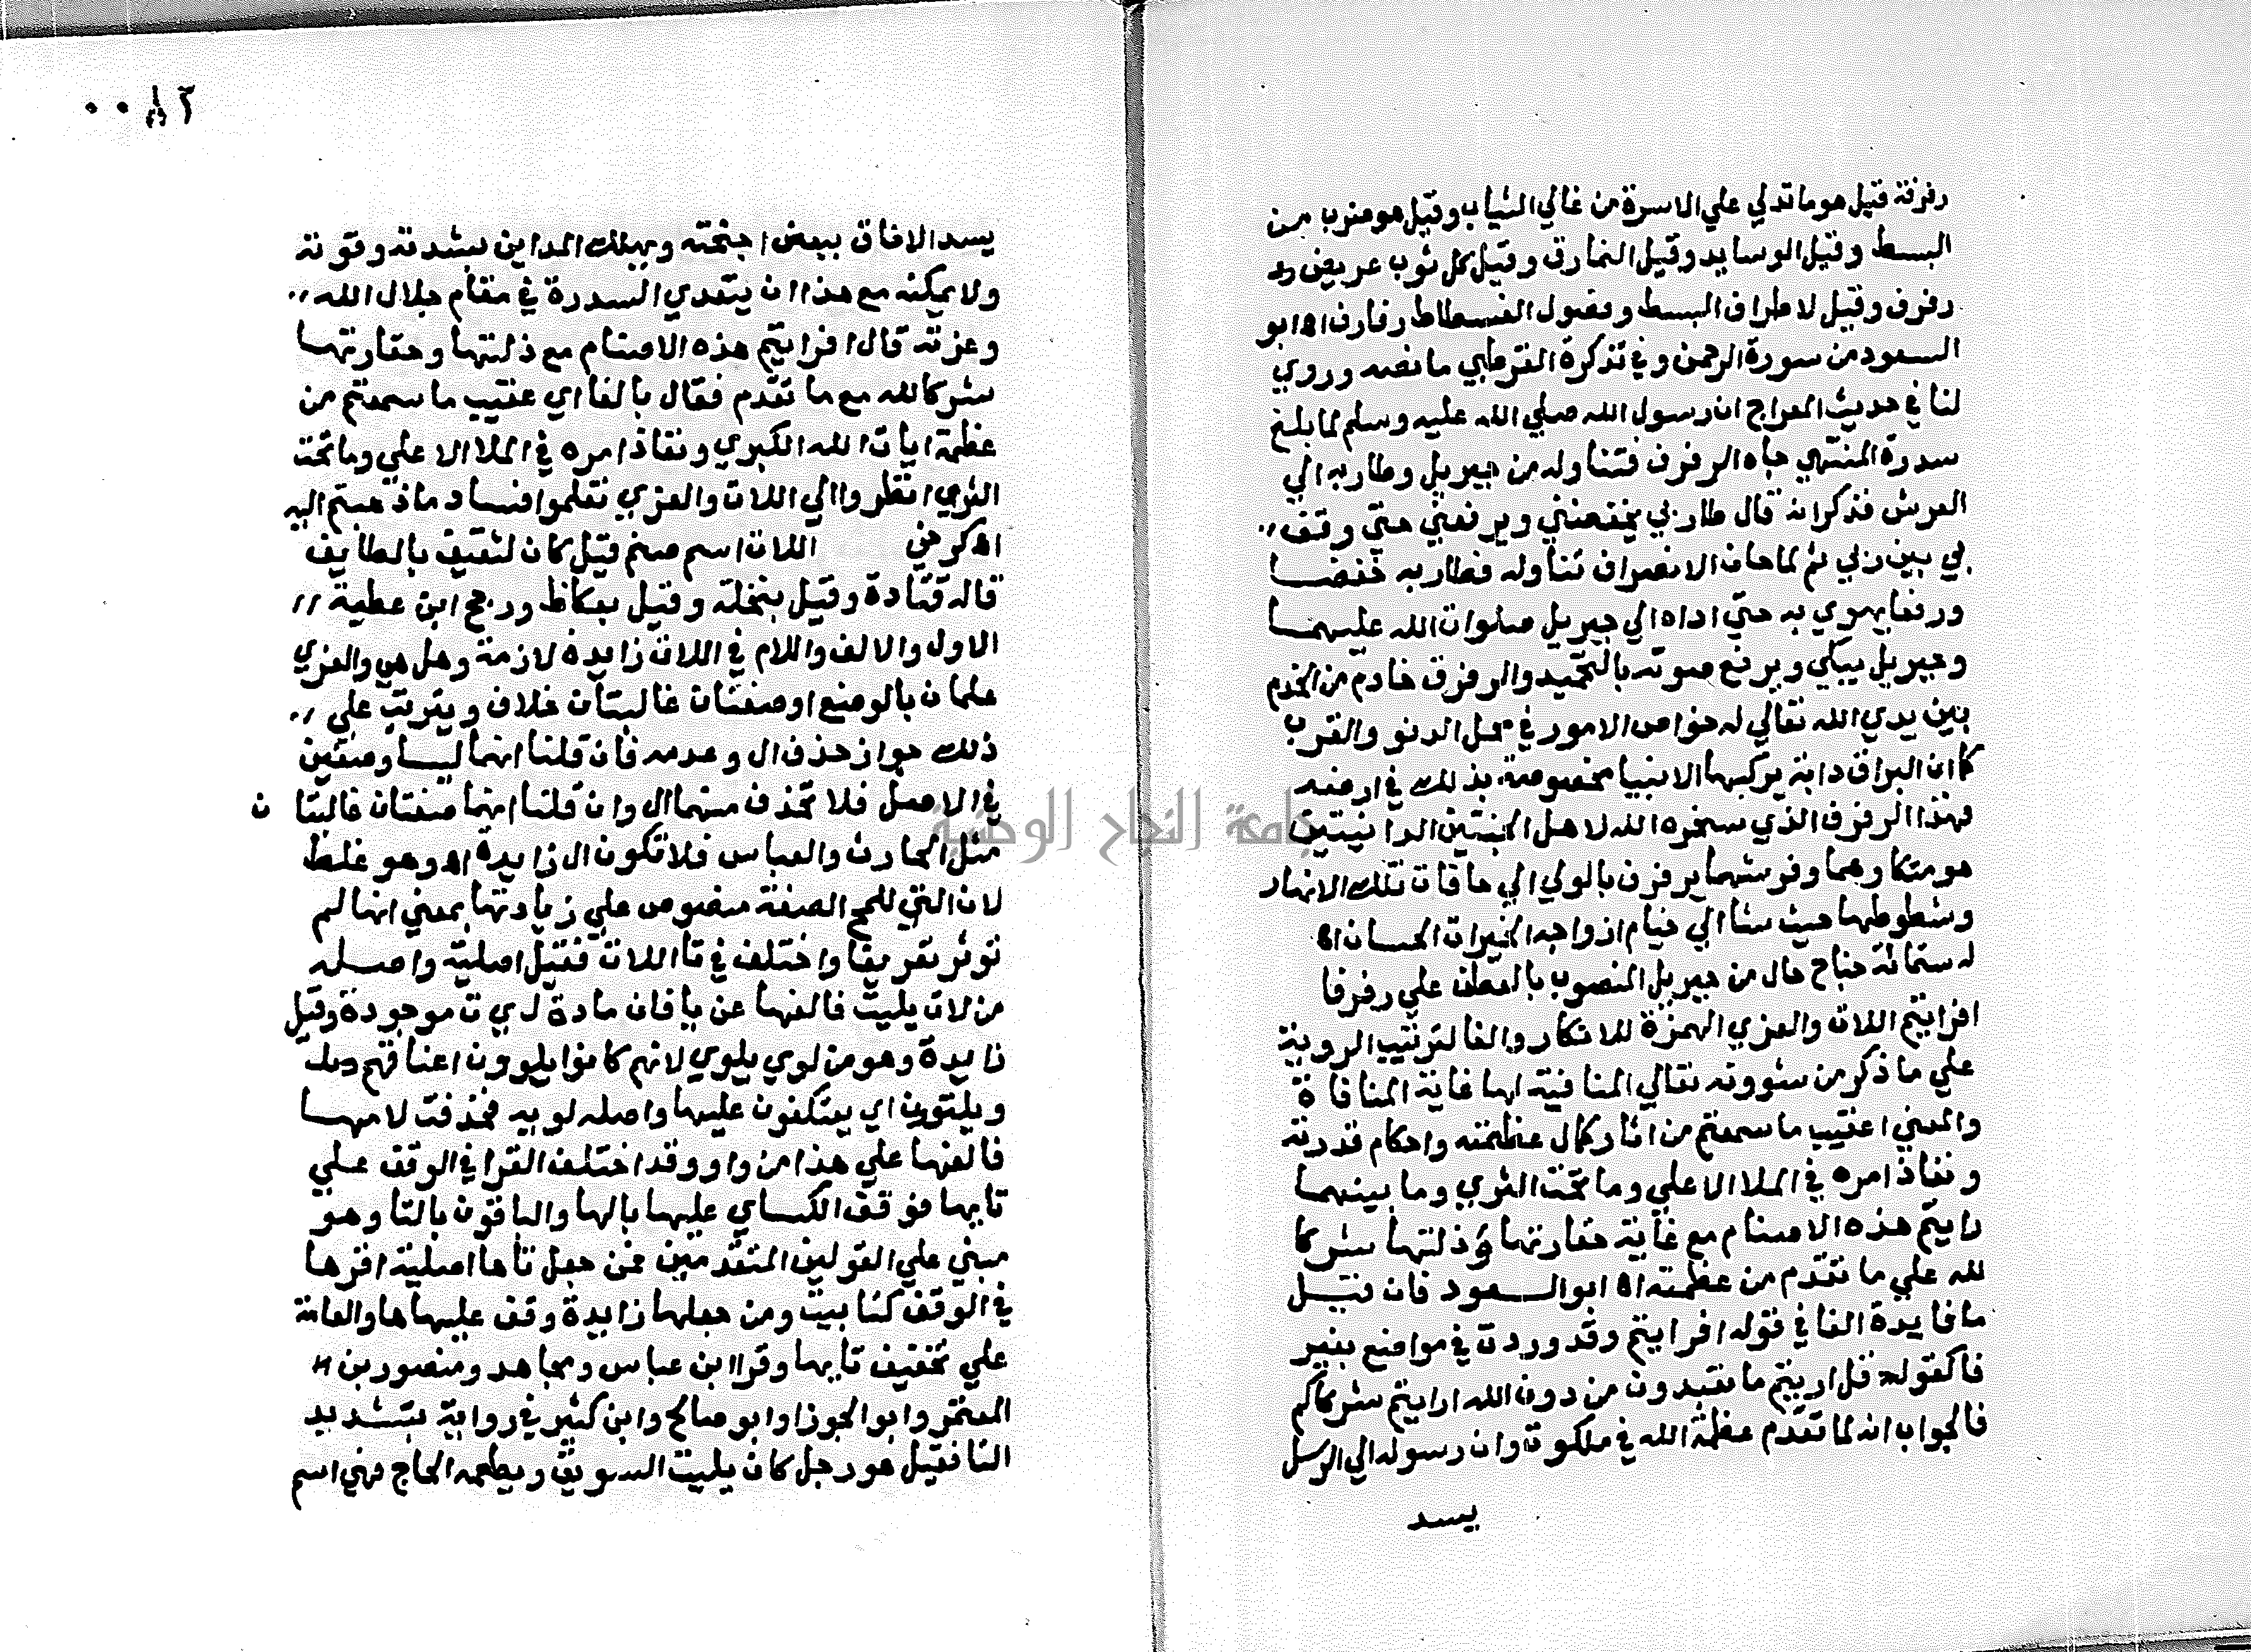 رفرفة قيل هو ما تدلي علي الاسرة من غالي الثياب وقيل هو ضرب من
البسط وقيل الوسايد وقيل النمارق وقيل كل ثوب عريض
رفرف وقيل لاطراف البسط وفضول الفسطاط رفارف اه ابو
السعود من سورة الرحمن وفي تذكرة القرطبي ما نصه وروي
لنا في حديث المعراج ان رسول الله صلي الله عليه وسلم لما بلغ
سدرة المنتهي جاه الرفرف فتناوله من جبريل وطار به الي
العرش فذكر انه قال طار بي يخفضني ويرفعني حتي وقف
بي بين ربي ثم لما حان الانصراف تناوله فطار به خفضا
ورفعا يهوي به حتي اداه الي جبريل صلوات الله عليهما
وجبريل يبكي ويرفع صوته بالتحميد والرفرف خادم من الخدم
بين يدي الله تعالي له خواص الامور في محل الدنو والقرب
كما ان البراق دابة يركبها الانبيا مخصوصة بذلك في ارضه
فهذا الرفرف الذي سخره الله لاهل الجنتين الدانيتين
هو متكاوهما وفرشهما يرفرف بالولي الي حافات تلك الانهار
وشطوطها حيث شا الي خيام ازواجه الخيرات الحسان اه
له ستمائة جناح حال من جبريل المنصوب بالعطف علي رفرفا
افرايتم اللات والعزي الهمزة للانكار والفا لترتيب الروية
علي ما ذكر من شوونه تعالي المنافية لها غاية المنافاة
والمعني اعقيب ما سمعتم من اثار كمال عظمته واحكام قدرته
ونفاذ امره في الملا الاعلي وما تحت الثري وما بينهما
رايتم هذه الاصنام مع غاية حقارتها وذلتها شركا
لله علي ما تقدم من عظمته اه ابو السعود فان قيل
ما فايدة الفا في قوله افرايتم وقد وردت في مواضع بغير
فا كقوله قل اريتم ما تعبدون من دون الله ارايتم شركاكم
فالجواب انه لما تقدم عظمة الله في ملكوته وان رسوله الي الرسل
يسد
٠٠٨٢
يسد الافاق ببعض اجنحته ويهلك المداين بشدته وقوته
ولا يمكنه مع هذا ان يتعدي السدرة في مقام جلال الله
وعزته قال افرايتم هذه الاصنام مع ذلتها وحقارتها
شركا لله مع ما تقدم فقال بالفا اي عقيب ما سمعتم من
عظمة ايات الله الكبري ونفاذ امره في الملا الاعلي وما تحت
الثري انظروا الي اللات والعزي تعلموا فساد ما ذهبتم اليه
اه كرخي اللات اسم صنم قيل كان لثقيف بالطايف
قاله قتادة وقيل بنخلة وقيل بعكاظ ورجح ابن عطية
الاول والالف واللام في اللات زايدة لازمة وهل هي والعزي
علمان بالوضع او صفتان غالبتان خلاف ويترتب علي
ذلك جواز حذف ال وعدمه فان قلنا انهما ليسا وصفين
في الاصل فلا تحذف منهما ال وان قلنا انهما صفتان غالبتا ن
مثل الحارث والعباس فلا تكون ال زايدة اه وهو غلط
لان التي للمح الصفة منصوص علي زيادتها بمعني انها لم
توثر تعريفا واختلف في تا اللات فقيل اصلية واصله
من لات يليت فالفها عن يا فان مادة ل ي ت موجودة وقيل
زايدة وهو من لوي يلوي لانهم كانوا يلوون اعناقهم
ويلتوون اي يعتكفون عليها واصله لويه فحذفت لامها
فالفها علي هذا من واو وقد اختلف القرا في الوقف علي
تايها فوقف الكساي عليها بالها والباقون بالتا وهو
مبني علي القولين المتقدمين فمن جعل تاها اصلية اقرها
في الوقف كتا بيت ومن جعلها زايدة وقف عليها ها والعامة
علي تخفيف تايها وقرا ابن عباس ومجاهد ومنصور بن
المعتمر وابو الجوزا وابو صالح وابن كثير في رواية بتشديد
التا فقيل هو رجل كان يليت السويق ويطعمه الحاج فهي اسم
جامعة النجاح الوطنية